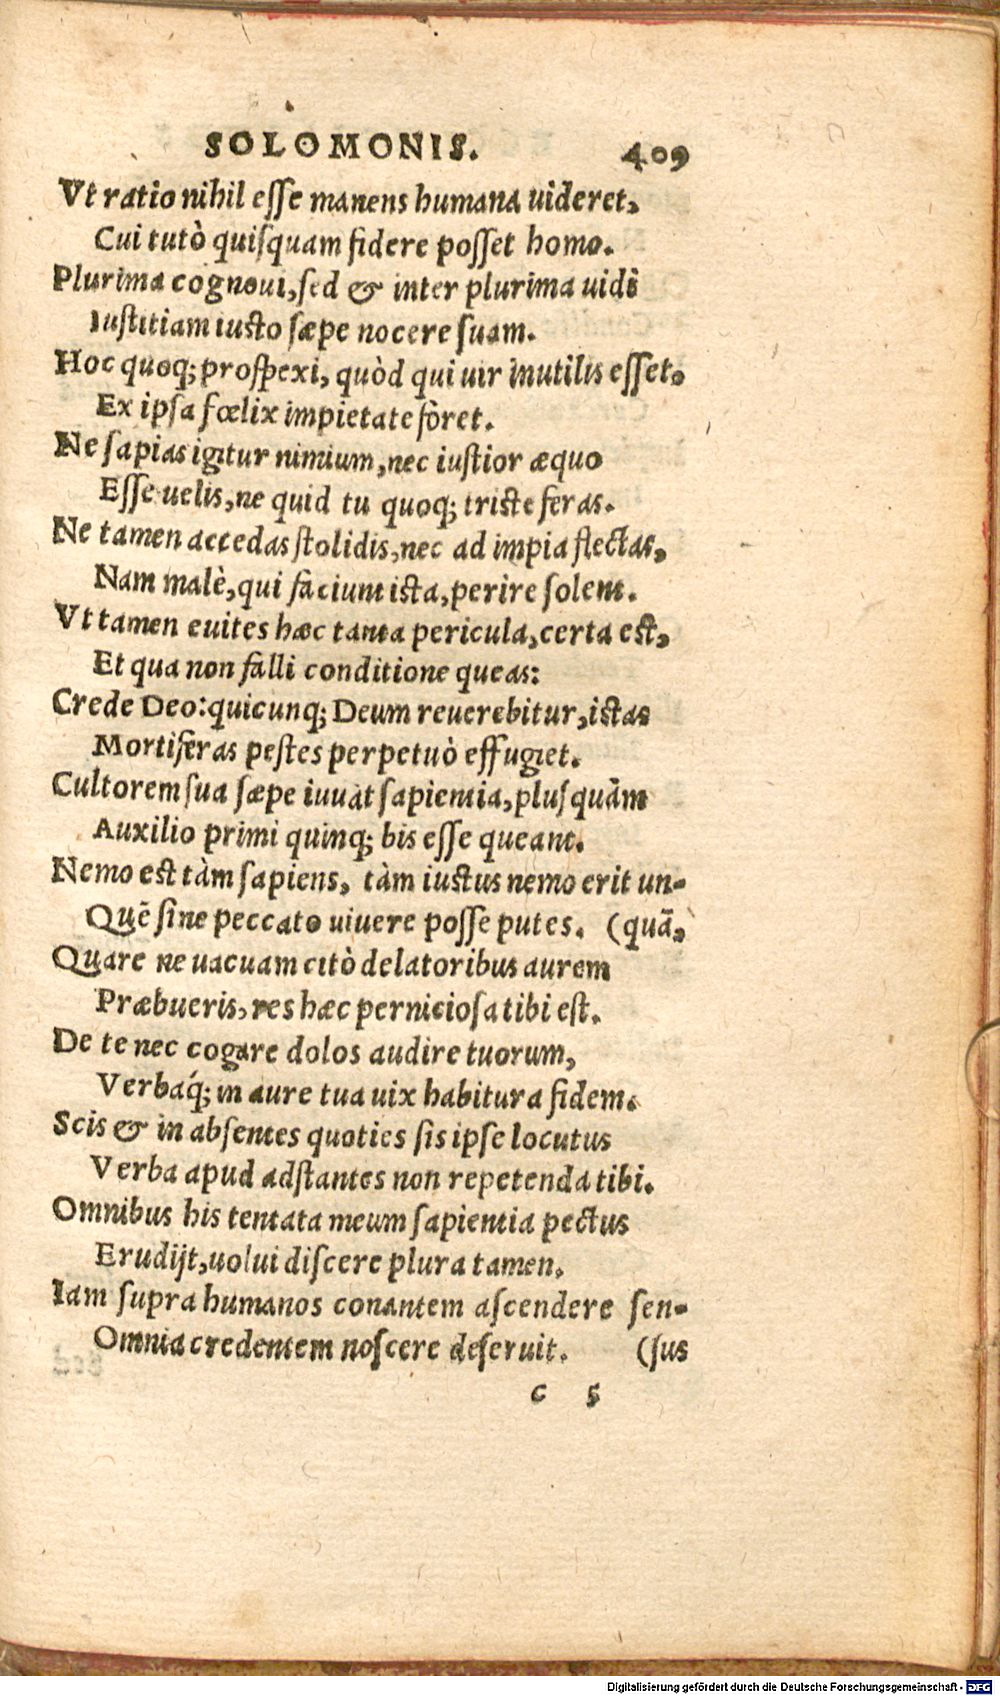 SOLOMONIS. 409
Vt ratio nihil esse manens humana uideret,
Cui tutò quisquam fidere posset homo.
Plurima cognoui, sed & inter plurima uidi
Iustitiam iusto sæpe nocere suam.
Hoc quoq; prospexi, quòd qui uir inutilis esset,
Ex ipsa fœlix impietate fôret.
Ne sapias igitur nimium, nec iustior æquo
Esse uelis, ne quid tu quoq; triste feras.
Ne tamen accedas stolidis, nec ad impia flectas,
Nam malè, qui faciunt ista, perire solent.
Vt tamen euites hæc tanta pericula, certa est,
Et qua non falli conditione queas:
Crede Deo: quicunq; Deum reuerebitur, istas
Mortiferas pestes perpetuò effugiet.
Cultorem sua sæpe iuuat sapientia, plus quàm
Auxilio primi quinq; bis esse queant.
Nemo est tàm sapiens, tàm iustus nemo erit un-
Quē sine peccato uiuere posse putes. (quā,
Quare ne uacuam citò delatoribus aurem
Præbueris, res hæc perniciosa tibi est.
De te nec cogare dolos audire tuorum,
Verbaq́; in aure tua uix habitura fidem.
Scis & in absentes quoties sis ipse locutus
Verba apud adstantes non repetenda tibi.
Omnibus his tentata meum sapientia pectus
Erudijt, uolui discere plura tamen.
Iam supra humanos conantem ascendere sen-
Omnia credentem noscere deseruit. (sus
c 5
Digitalisierung gefördert durch die Deutsche Forschungsgemeinschaft - DFG